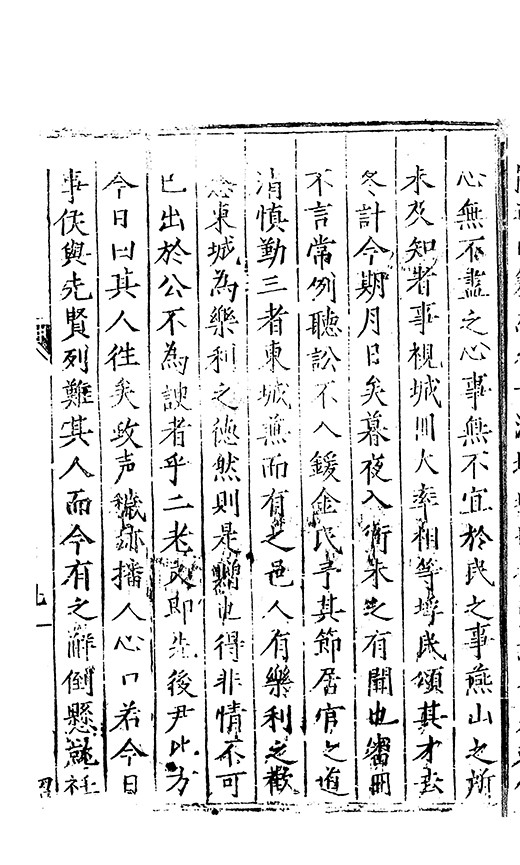 心無不盡之心事無不宜於民之事燕山之所
未及知者事視城川大率相等埒民頌其才玄
冬計今期月日矣暮夜入衙未之有聞也審冊
不言常例聽訟不入鍰金民予其節居官之道
清慎勤三者東城兼而有之邑人有樂利之歡
東城為樂利之德然則是贈也得非情不可
已出於公不為諛者乎二老民即先後尹此方
今日曰其人徃矣政声穢跡播人心口若今日
事侯與先賢列難其人而今有之觧倒懸就衽